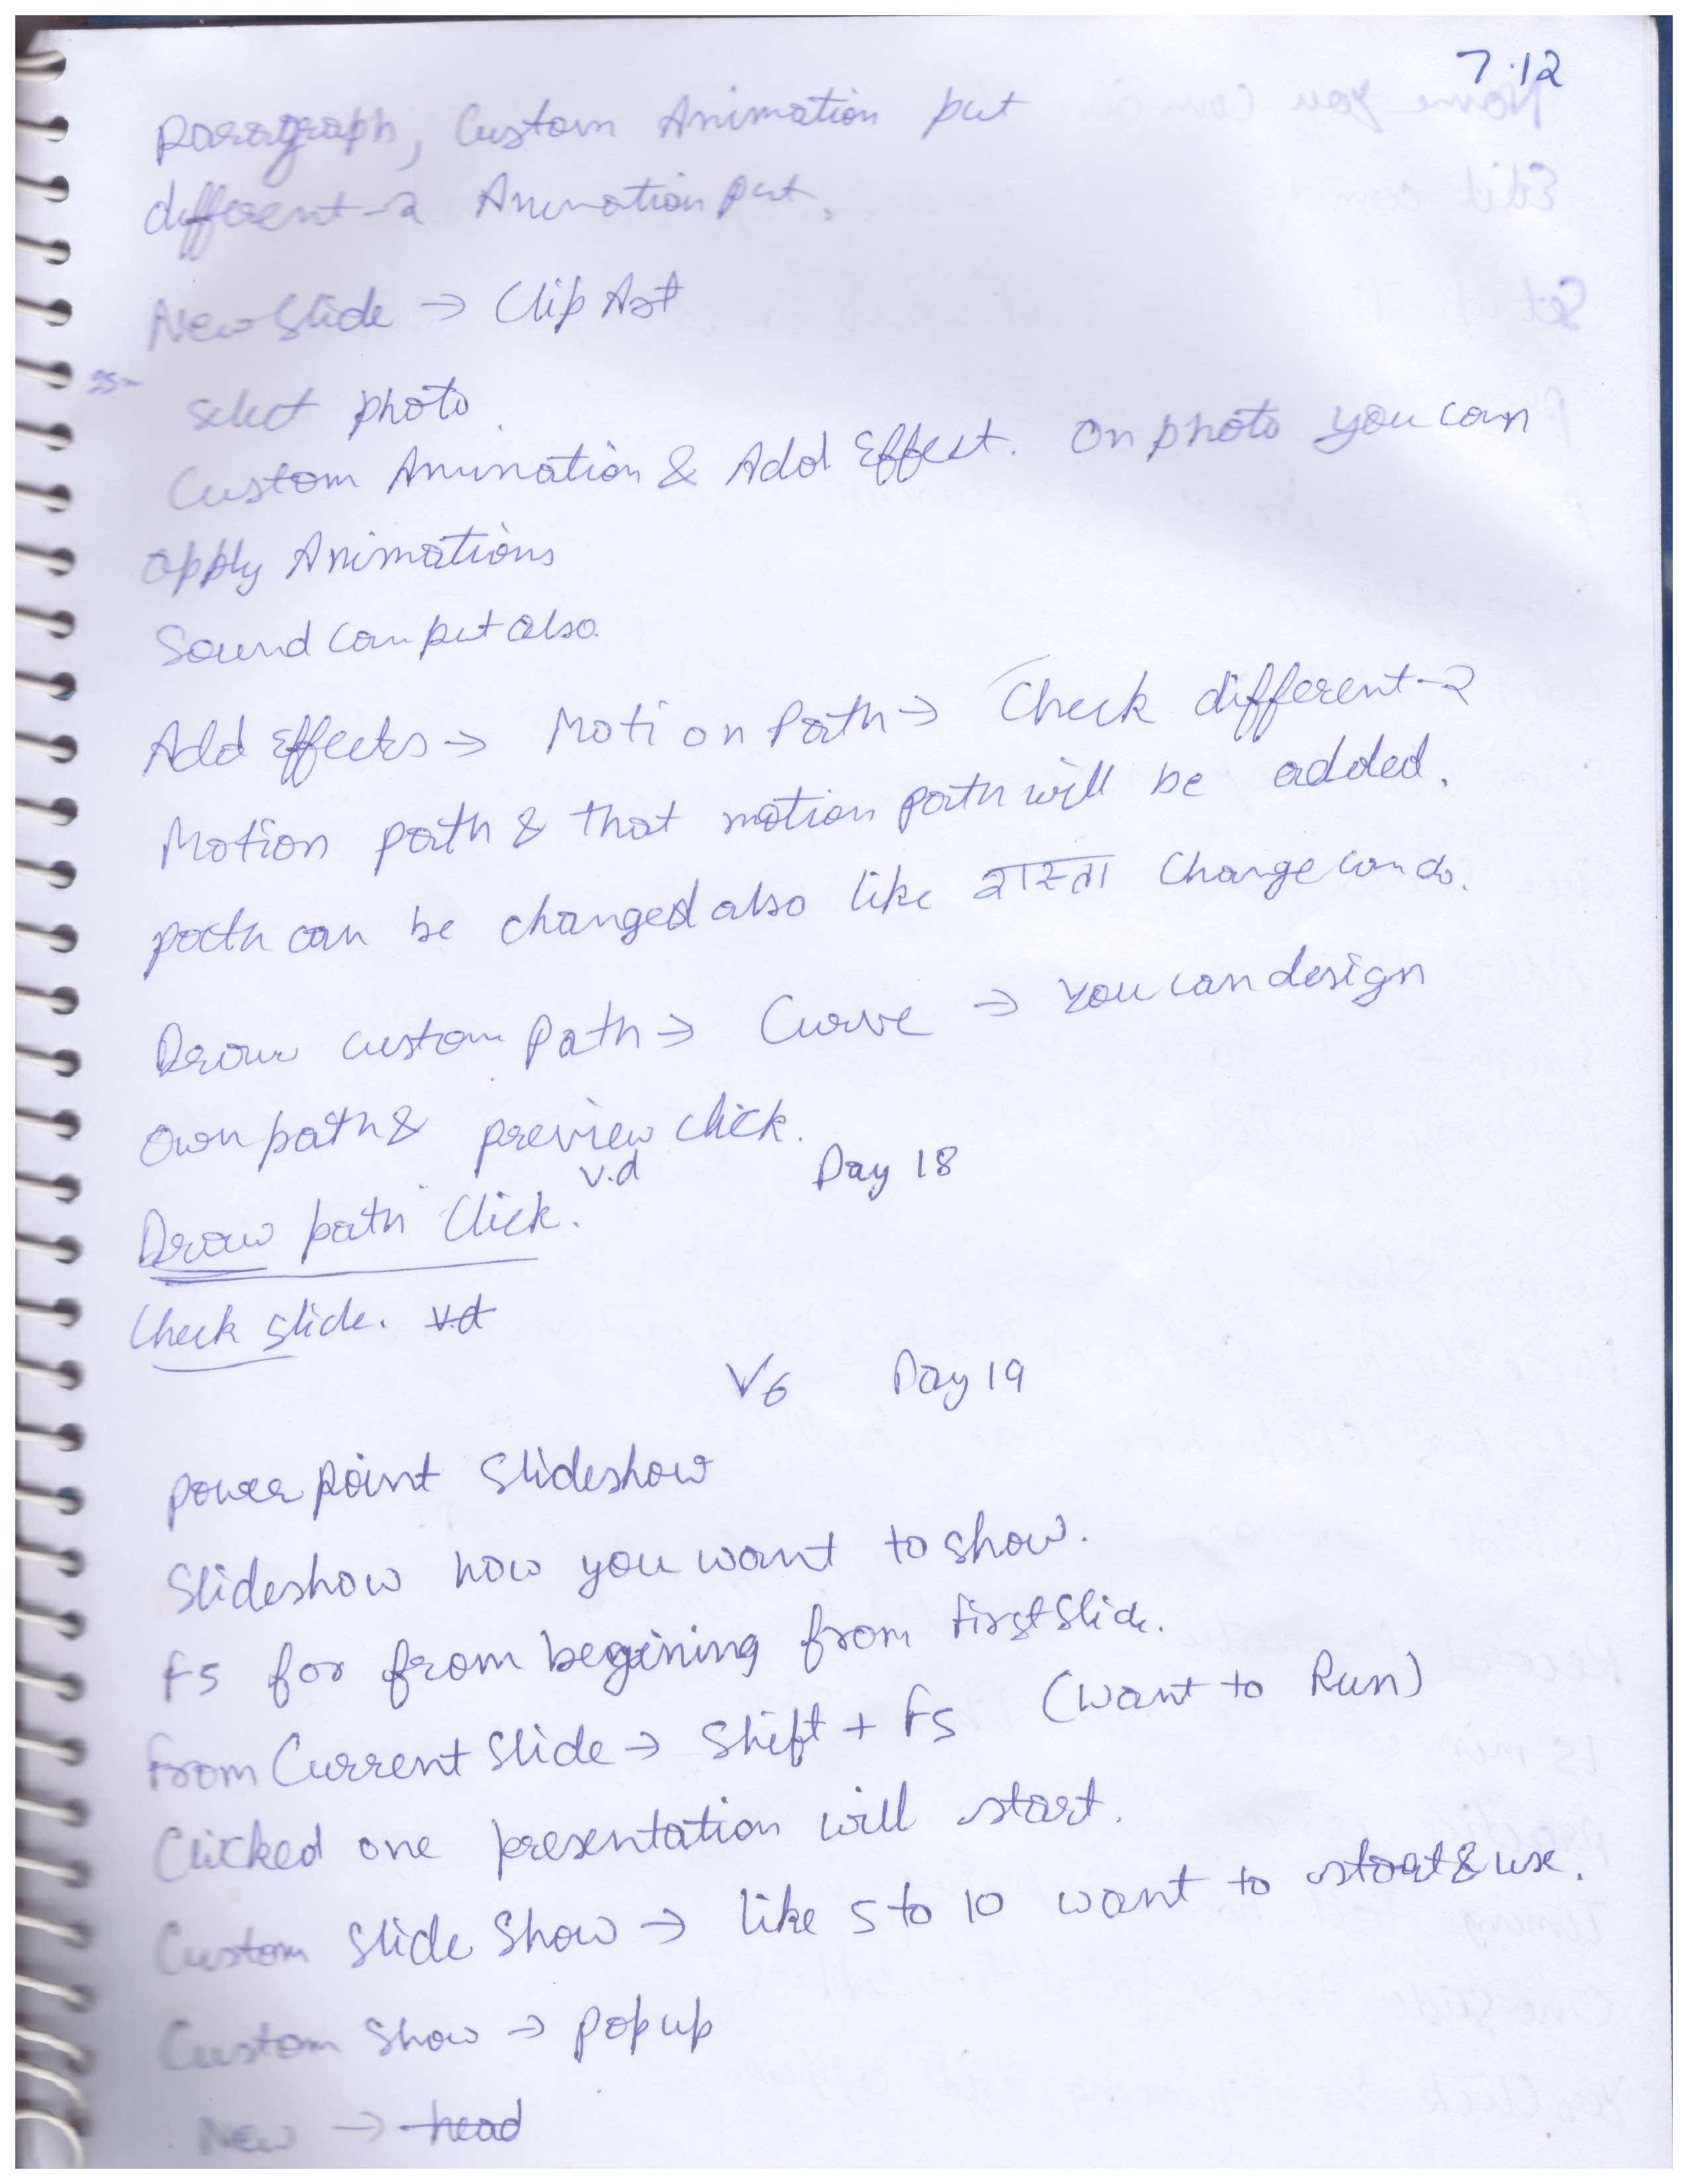 7.12
Paragraph, Custom Animation put
different-2 Animation put.
New Slide → Clip Art
Select photo.
Custom Animation & Add Effect. On photo you can
apply Animations
Sound can put also.
Add Effects → Motion Path → Check different-2
Motion path & that motion path will be added.
path can be changed also like रास्ता Change can do.
Draw custom Path → Curve → You can design
Own path & preview click.
v.d Day 18
Draw path Click.
Check slide. v.d
V6 Day 19
Power Point Slideshow
Slideshow how you want to show.
F5 for from begining from First Slide.
From Current Slide → Shift + F5 (Want to Run)
Clicked one presentation will start.
Custom Slide Show → like 5 to 10 want to start & use.
Custom Show → Pop up
New → head